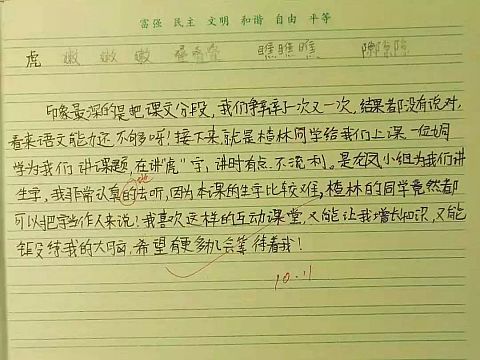 富强 民主 文明 和谐 自由 平等
虎 嫩 嫩 嫩 叠叠叠 瞧瞧瞧
印象最深的是把课文分段，我们争辩了一次又一次，结果都没有说对，
看来语文能力还不够呀！接下来，就是楂林同学给我们上课一位
学为我们讲课题，在讲“虎”字，讲时有点不流利。是龙凤小组为我们讲
生字，我非常认真的去听，因为本课的生字比较难，楂林的同学竟然都
可以把字当作人来说！我喜欢这样的互动课堂，又能让我增长知识，又能
锻炼我的大脑，希望有更多机会等待着我！
10.11